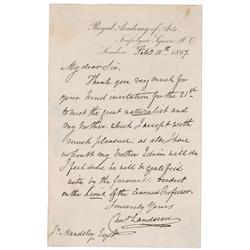 Royal Academy of Arts
Trafalgar Square W.C.
London Feby. 18th 1867.
My dear Sir,
Thank you very much for
your kind invitation for the 21st
to meet the great naturalist and
my brother which I accept with
much pleasure, as also I have
no doubt my brother Edwin will do
I feel sure he will be gratified
by the favourable verdict
on the Lions of the learned Professor
Sincerely Yours
Chas Landseer
Esqr